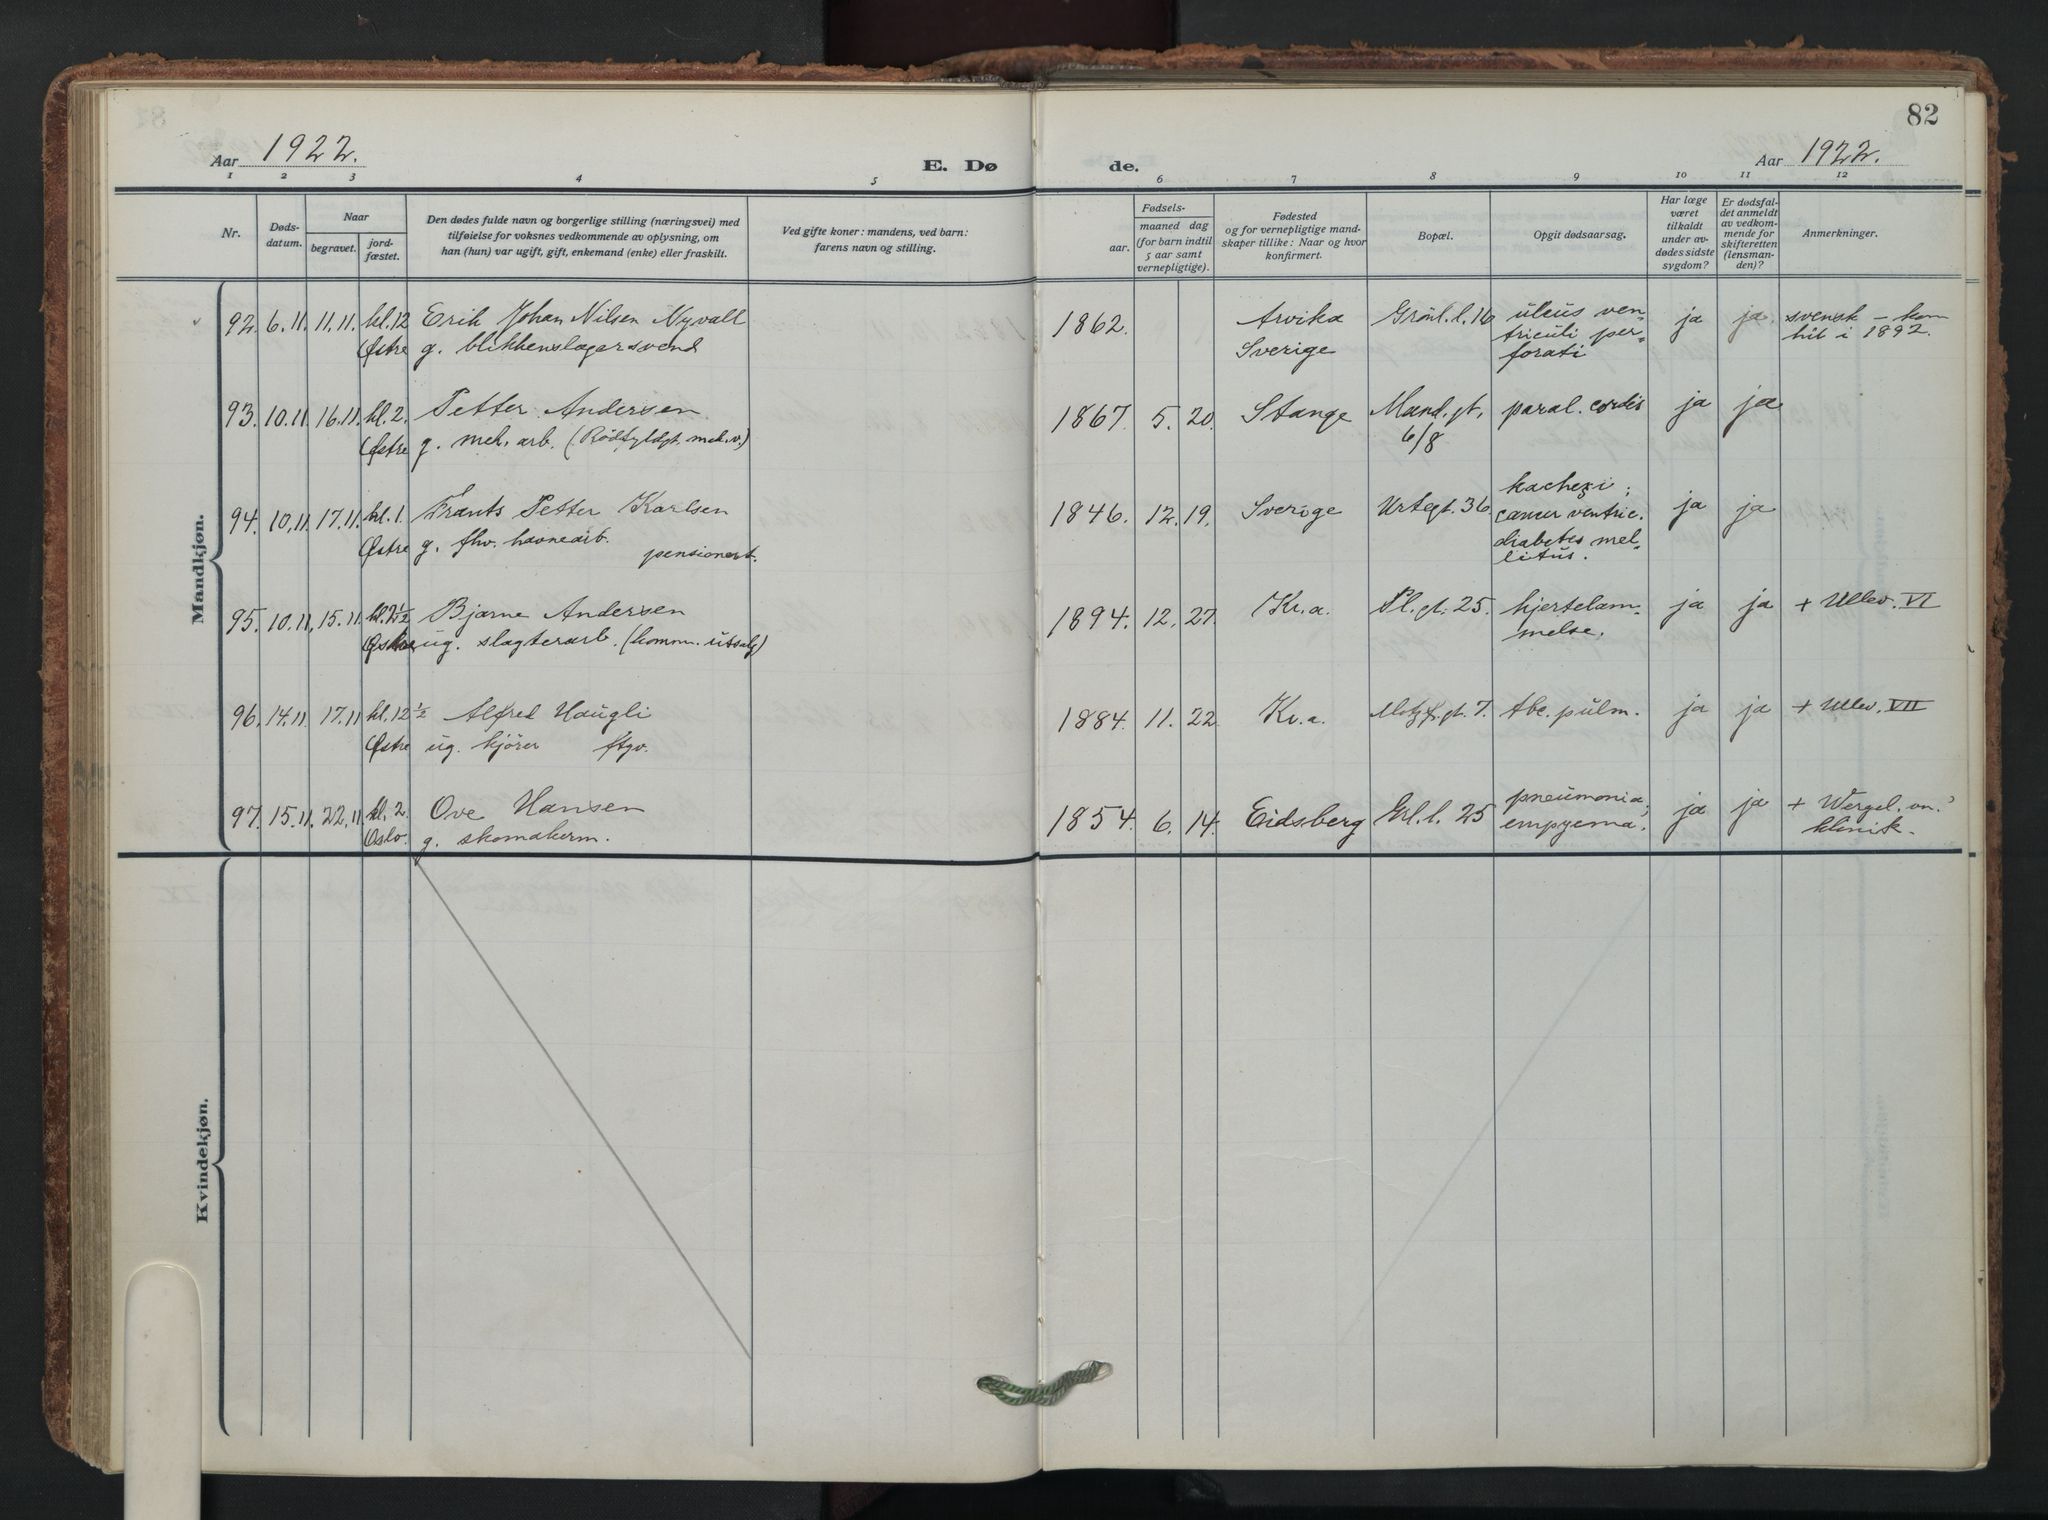 82
Aar 1922.
E. Dø
de.
Aar 1922.
1 2 3 4 5 6 7 8 9 10 11 12
Nr.
Døds-
datum.
Naar
begravet.
jord-
fæstet.
Den dødes fulde navn og borgerlige stilling (næringsvei) med
tilføielse for voksnes vedkommende av oplysning, om
han (hun) var ugift, gift, enkemand (enke) eller fraskilt.
Ved gifte koner: mandens, ved barn:
farens navn og stilling.
Fødsels-
aar. maaned dag
(for barn indtil
5 aar samt
vernepligtige).
Fødested
og for vernepligtige mand-
skaper tillike: Naar og hvor
konfirmert.
Bopæl.
Opgit dødsaarsag.
Har læge
været
tilkaldt
under av-
dødes sidste
sygdom?
Er dødsfal-
det anmeldt
av vedkom-
mende for
skifteretten
(lensman-
den)?
Anmerkninger.
Mandkjøn.
92. 6.11. 11.11. kl. 12 Erik Johan Nilsen Nyvall 1862. Arvika Grönl. l. 16 ulcus ven- ja ja. svensk – kom
Østre g. blikkenslagersvend Sverige triculi per- hit i 1892.
forati
93. 10.11. 16.11. kl. 2. Petter Andersen 1867. 5. 20. Stange Mand. gt. paral. cordis ja ja
Østre g. mek. arb. (Rödfyldgt. mek. v.) 6/8
kachexi;
94. 10.11. 17.11. kl. 1. Frants Petter Karlsen 1846. 12. 19. Sverige Urtegt. 36. cancer ventric. ja ja
Østre g. fhv. havnearb. diabetes mel-
pensionert. litus.
95. 10.11. 15.11. kl. 2½ Bjarne Andersen 1894. 12. 27. Kr.a. Pl. gt. 25. hjertelam- ja ja + Ullev. VI
Østre ug. slagterarb. (komm. utsalg) melse.
96. 14.11. 17.11. kl. 12½ Alfred Haugli 1884. 11. 22. Kr.a. Motzf. gt. 7. tbc. pulm. ja ja + Ullev. VII
Østre ug. kjører ftgv.
97. 15.11. 22.11. kl. 2. Ove Hansen 1854. 6. 14. Eidsberg Grl. l. 25 pneumonia; ja ja + Wergel. vn.
Oslo. g. skomakerm. empyema. klinik.
Kvindekjøn.